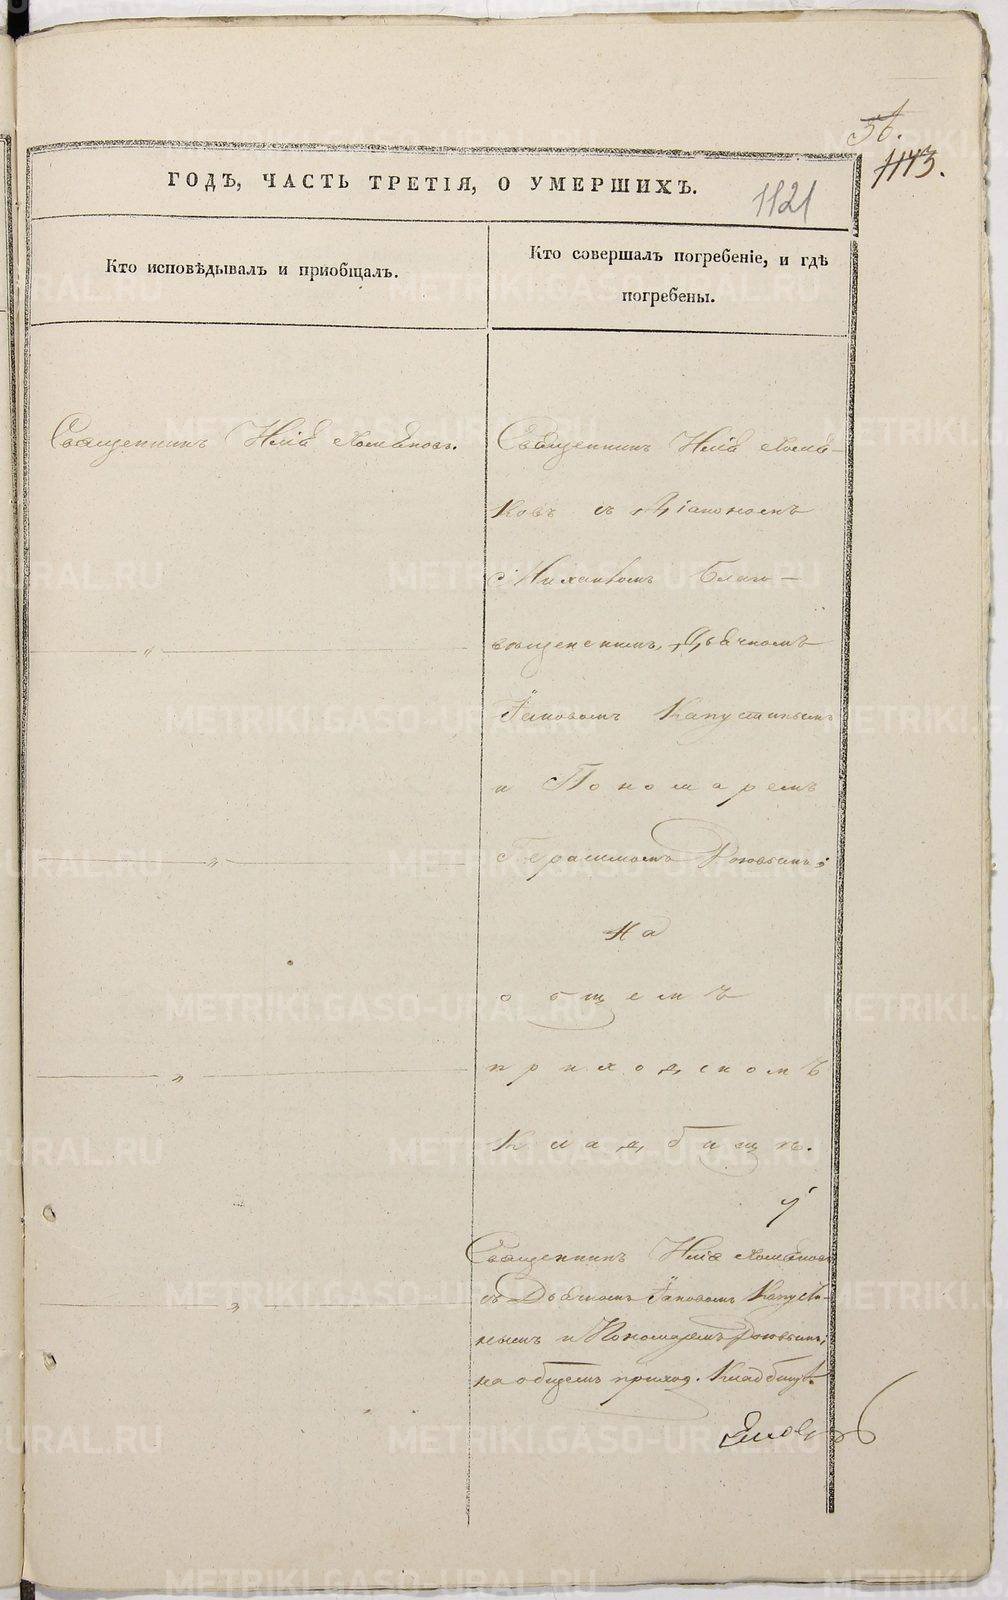 56.
1173.
1121
ГОДЪ, ЧАСТЬ ТРЕТІЯ, О УМЕРШИХЪ.
Кто исповѣдывалъ и приобщалъ.
Кто совершалъ погребеніе, и гдѣ
погребены.
Священникъ Илія Хомяковъ.
Священникъ Илія Хомя-
ковъ съ Діакономъ
Михаиломъ Благо-
вѣщенскимъ, Дьячкомъ
Іаковомъ Капустинымъ
и Пономаремъ
Герасимомъ
на
общемъ
приходскомъ
Кладбищѣ.
Священникъ Илія Хомяковъ
съ Дьячкомъ Іаковомъ Капусти-
нымъ и Пономаремъ
на общемъ приход. Кладбищѣ.
METRIKI.GASO-URAL.RU